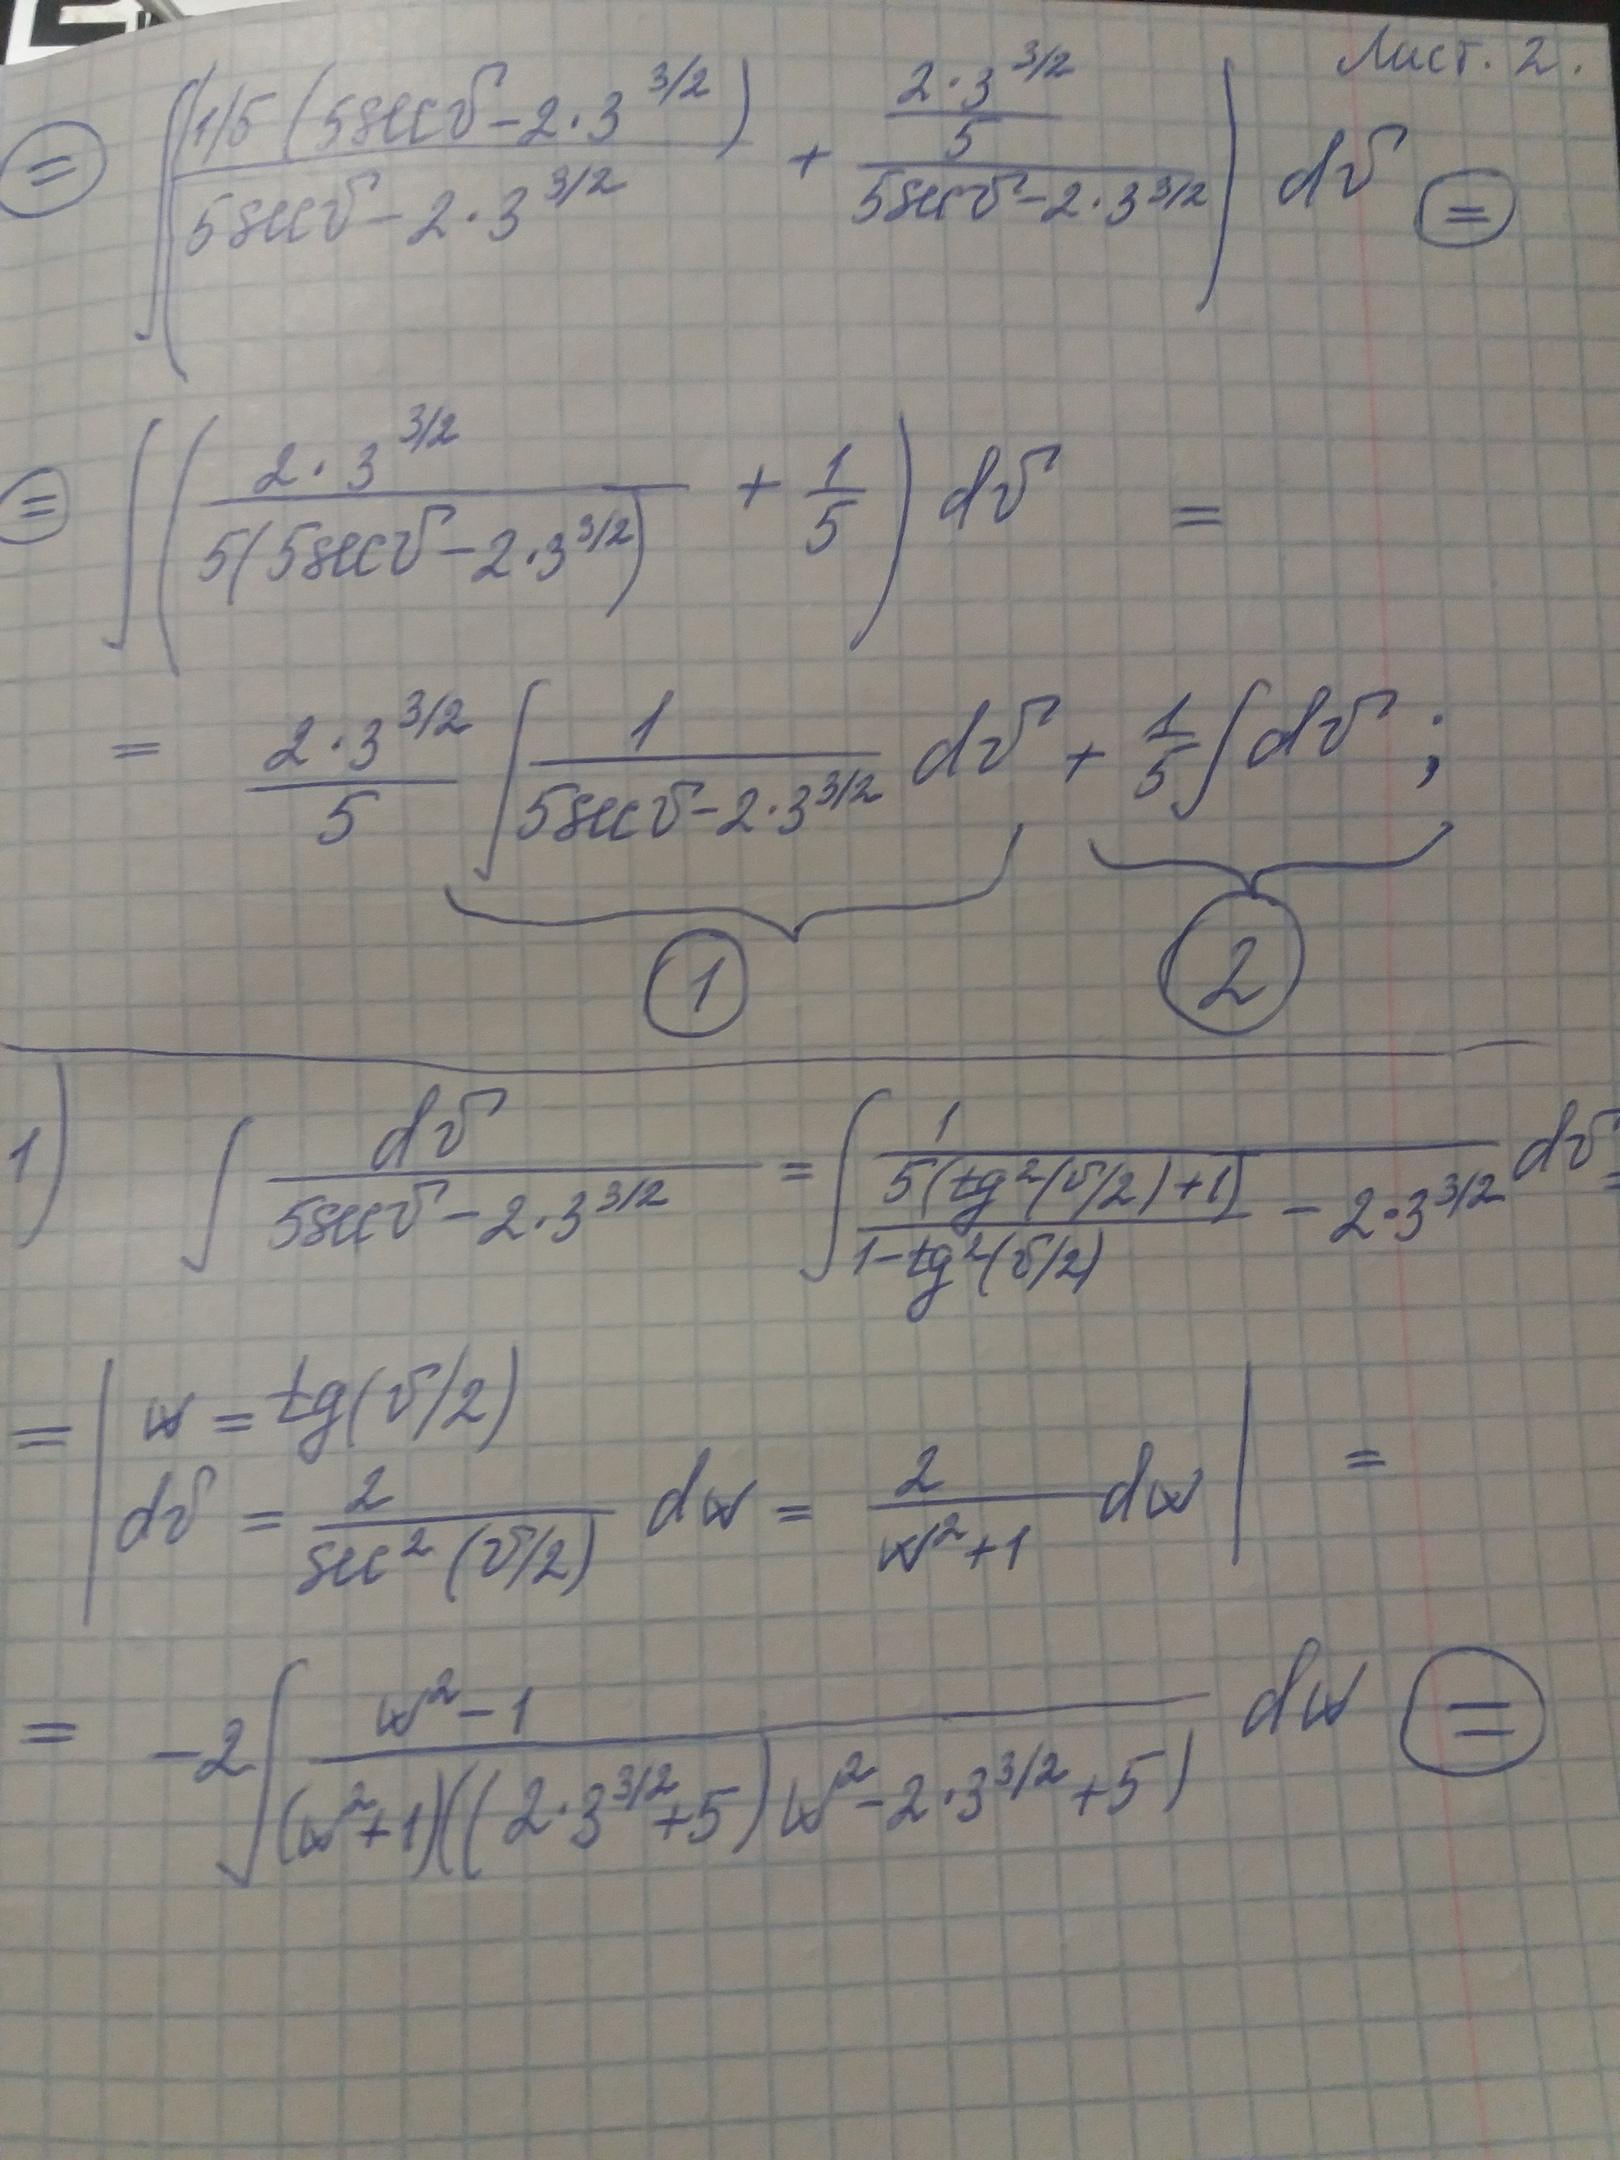 Лист. 2.
= ∫ ( (1/5 (5secv - 2·3^(3/2))) / (5secv - 2·3^(3/2)) + ((2·3^(3/2))/5) / (5secv - 2·3^(3/2)) ) dv =
= ∫ ( (2·3^(3/2)) / (5(5secv - 2·3^(3/2))) + 1/5 ) dv =
= (2·3^(3/2))/5 ∫ 1/(5secv - 2·3^(3/2)) dv + 1/5 ∫ dv ;
1 2
1) ∫ dv/(5secv - 2·3^(3/2)) = ∫ 1/( (5(tg²(v/2)+1))/(1-tg²(v/2)) - 2·3^(3/2) ) dv =
= | w = tg(v/2)
dv = 2/(sec²(v/2)) dw = 2/(w²+1) dw | =
= -2 ∫ (w²-1)/((w²+1)((2·3^(3/2)+5)w²-2·3^(3/2)+5)) dw =